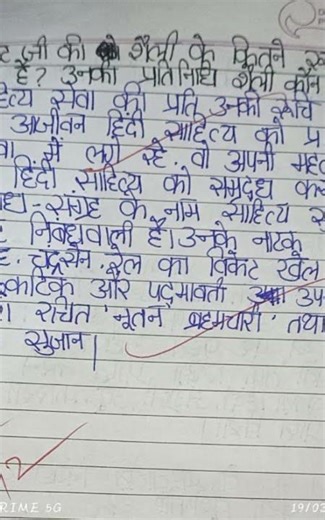 जी की शैली के कितने
है? उनकी प्रतिनिधि शैली कौन
सेवा की प्रति उनकी रूचि
आजीवन हिंदी साहित्य की प्र
में लगे रहे. वो अपनी
हिंदी साहित्य को समृद्ध कर
संग्रह के नाम साहित्य सु
निबंधवाली है। उनके नाटक
चंद्रसेन, रेल का विकेट खेल
और पद्मावती उप
रचित 'नूतन ब्रह्मचारी' तथा
सुजान।
RIME 5G
19/02